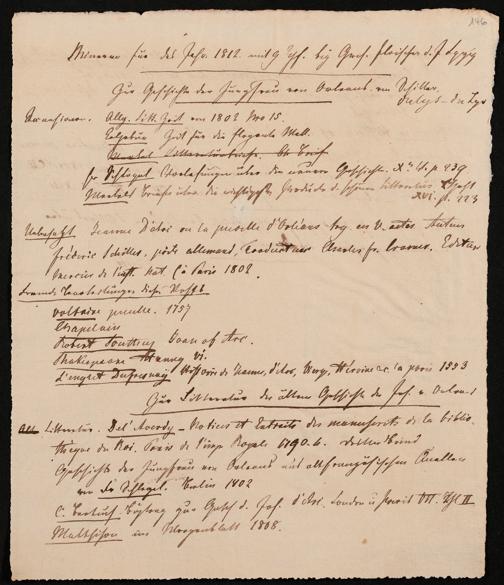 146
Minerva für das Jahr 1812 mit 9 bey Gerh. Fleischer d. J.
Zur Geschichte der Jungfrau von Orleans von Schiller.
Dulys - du Lys
Recensionen. Allg. Litt. Zeit von 1802 No 15.
Zeit für die elegante Welt.
Merkel
fr Schlegel Vorlesungen über die neuere Geschichte. p. 239
Merkels Briefe über die wichtigsten Produkte der schönen Litteratur.
XVI. p. 223
Uebersetzt. Jeanne d'Arc ou la pucelle d'Orléans trag. en V. actes. Auteur
frédéric Schiller. poète allemand, traducteur Charles fr. Cramer. Editeur
Mercier de l'inst. nat. à Paris 1802.
fremde Bearbeitungen dieses Stoffs
Voltaire pucelle. 1757
Chapelain
Robert Southey Joan of Arc.
Shakespeare Henry VI.
Lenglet Dufresnoy Histoire de Jeanne, d'Arc, Vierge, Héroine &c. la paris 1753
Zur Litteratur der ältern Geschichte der Joh. v. Orleans
Litteratur. Del' Averdy - Notices et Extraits des manuscrits de la biblio-
theque du Roi. Paris de l'imp. Royale 1790. 4. dritter Band
Geschichte der Jungfrau von Orleans aus altfranzösischen Quellen
von Fr Schlegel. Berlin 1802
C. Bertuch Beytrag zur Gesch d. Joh. d'Arc. London u Paris VII. II
Matthison im Morgenblatt 1808.